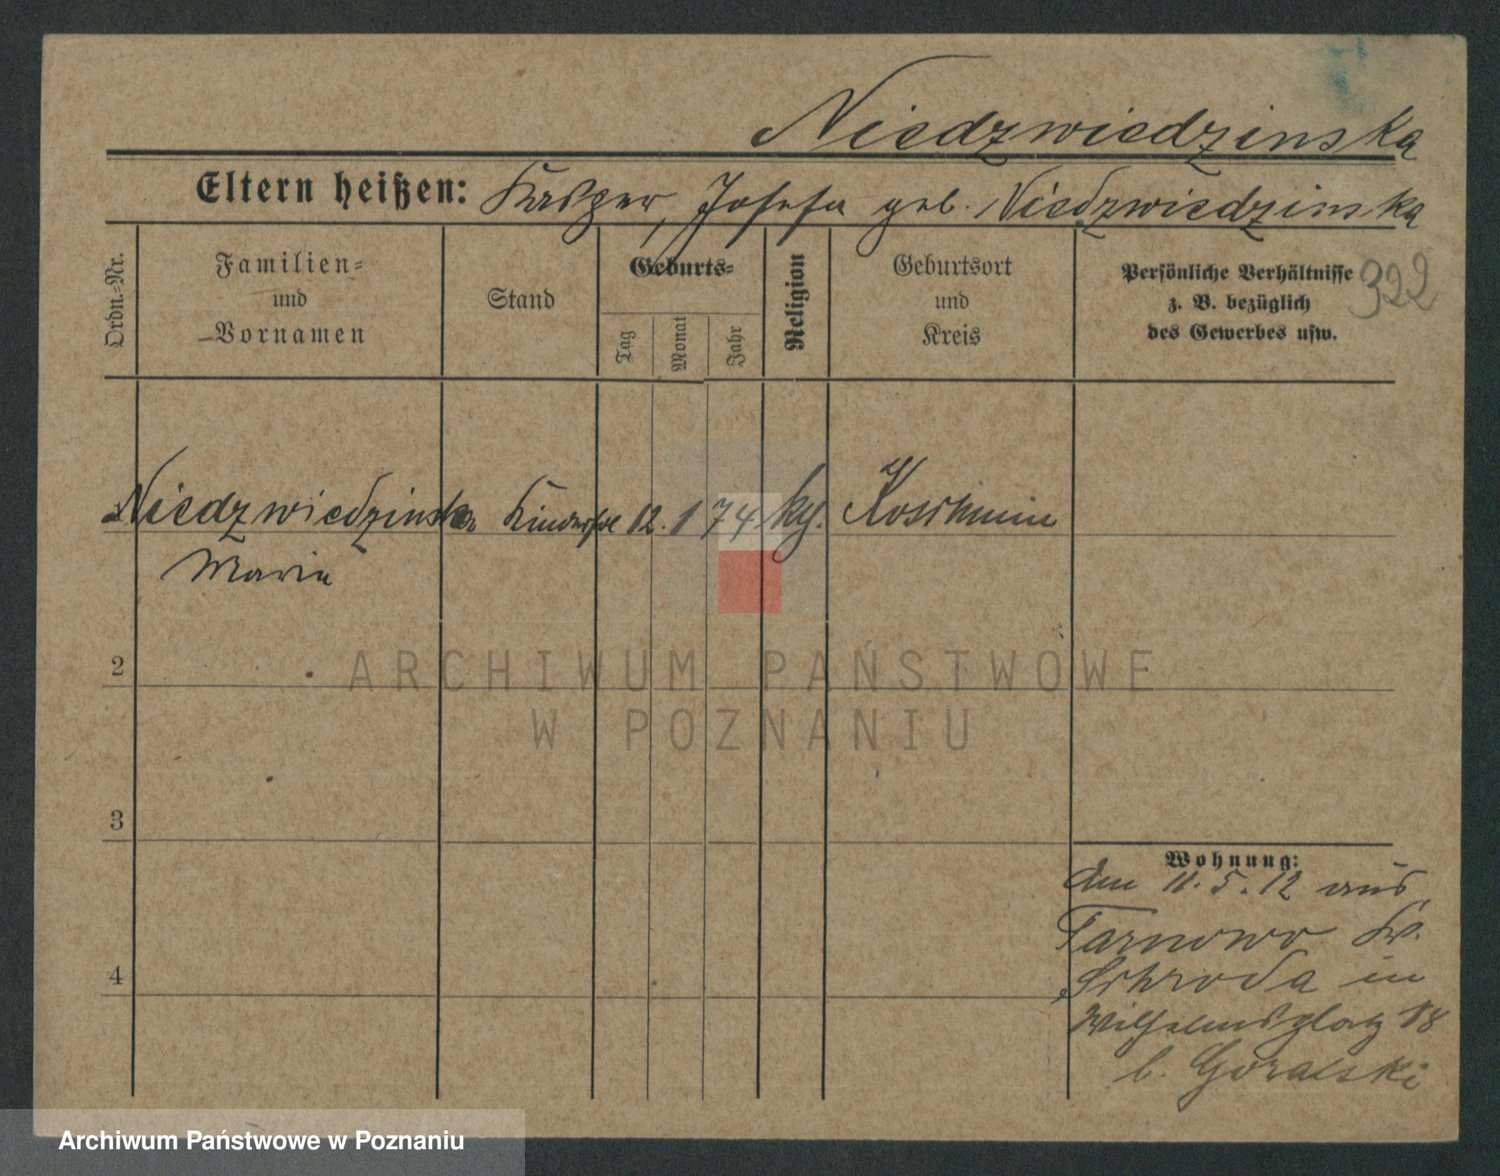 Niedzwiedzinska
Eltern heißen: Kasper, Josefa geb. Niedzwiedzinska
Ordn.-Nr.
Familien-
und
Vornamen
Stand
Geburts-
Tag
Monat
Jahr
Religion
Geburtsort
und
Kreis
Persönliche Verhältnisse
z. B. bezüglich
des Gewerbes usw.
322
Niedzwiedzinska 12. 1 74 kg. Koschmin
Maria
2
ARCHIWUM PAŃSTWOWE
W POZNANIU
3
Wohnung:
den 11.5.12 aus
Tarnowo Kr.
4
Schroda in
Wilhelmsplatz 18
b. Goralski
Archiwum Państwowe w Poznaniu